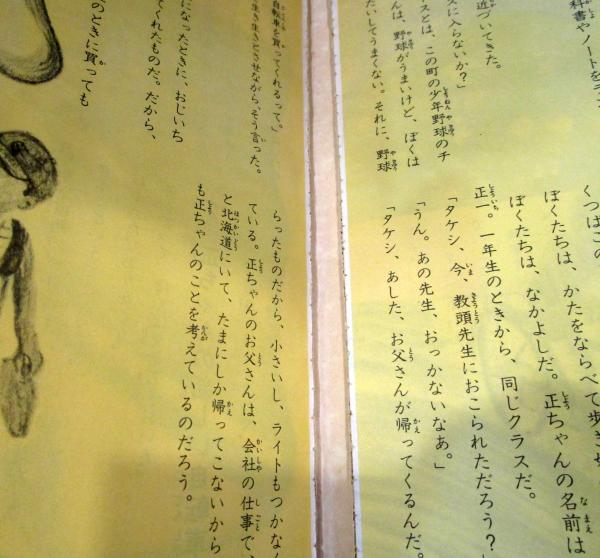 科書やノートをラン
近づいてきた。
スに入らないか?」
スとは、この町の少年野球のチ
んは、野球がうまいけど、ぼくは
たいしてうまくない。それに、野球
くつはこの
ぼくたちは、かたをならべて歩き
ぼくたちは、なかよしだ。正ちゃんの名前は
正一。一年生のときから、同じクラスだ。
「タケシ、今、教頭先生におこられただろう?
「うん。あの先生、おっかないなあ。」
「タケシ、あした、お父さんが帰ってくるんだ。
自転車を買ってくれるって。」
生き生きとさせながら、そう言った。
になったときに、おじいち
てくれたものだ。だから、
のときに買っても
らったものだから、小さいし、ライトもつかなく
ている。正ちゃんのお父さんは、会社の仕事で、
と北海道にいて、たまにしか帰ってこないから
も正ちゃんのことを考えているのだろう。